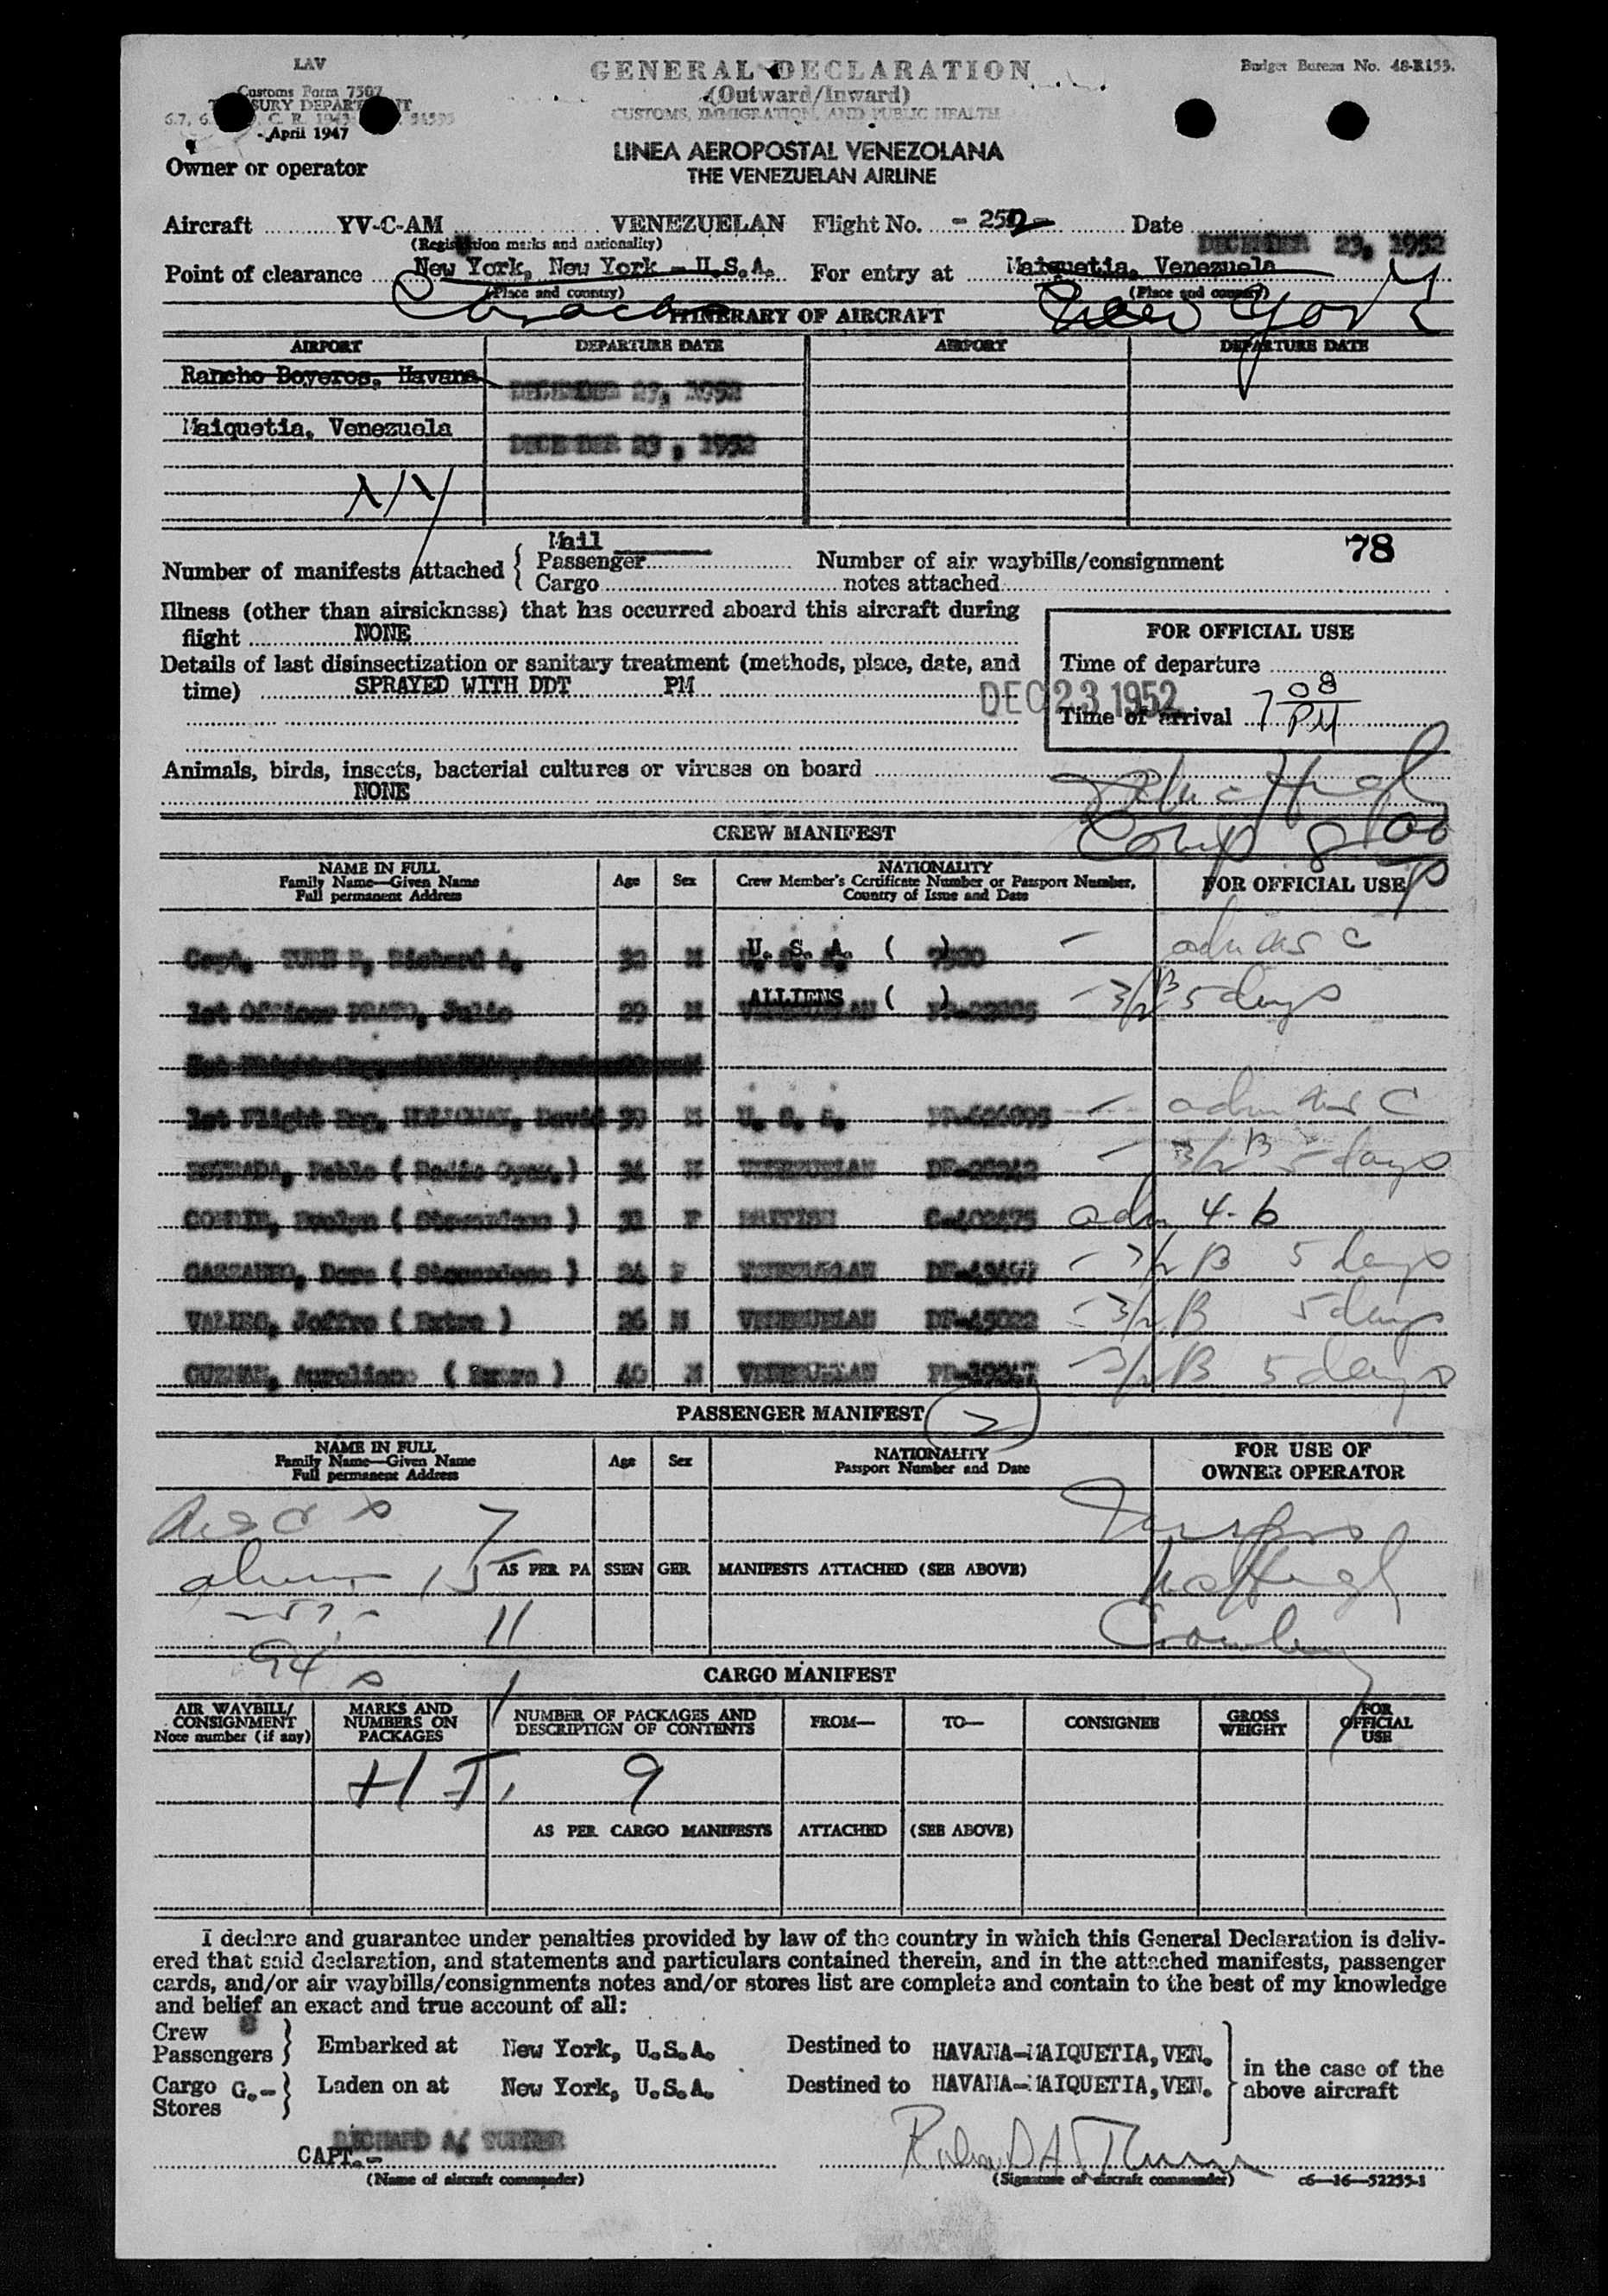 LAV
GENERAL DECLARATION
Budget Bureau No. 48-R153.
Customs Form 7507
(Outward/Inward)
TREASURY DEPARTMENT
CUSTOMS, IMMIGRATION, AND PUBLIC HEALTH
April 1947
LINEA AEROPOSTAL VENEZOLANA
Owner or operator
THE VENEZUELAN AIRLINE
Aircraft YV-C-AM VENEZUELAN Flight No. - 252 - Date DECEMBER 23, 1952
(Registration marks and nationality)
Point of clearance New York, New York - U.S.A. For entry at Maiquetia, Venezuela
(Place and country) (Place and country)
Caracas New York
ITINERARY OF AIRCRAFT
AIRPORT DEPARTURE DATE AIRPORT DEPARTURE DATE
Rancho Boyeros, Havana DECEMBER 23, 1952
Maiquetia, Venezuela DECEMBER 23, 1952
N/Y
78
Mail
Number of manifests attached { Passenger Number of air waybills/consignment
Cargo notes attached
Illness (other than airsickness) that has occurred aboard this aircraft during
flight NONE
FOR OFFICIAL USE
Details of last disinsectization or sanitary treatment (methods, place, date, and
time) SPRAYED WITH DDT PM
Time of departure
DEC 23 1952
Time of arrival 7 08 PM
Animals, birds, insects, bacterial cultures or viruses on board
NONE
Comp 8 00 P
CREW MANIFEST
NAME IN FULL
Family Name—Given Name
Full permanent Address
Age Sex
NATIONALITY
Crew Member's Certificate Number or Passport Number,
Country of Issue and Date
FOR OFFICIAL USE
U. S. A. ( )
Capt. TURNER, Richard A. 32 M U. S. A. 7520
ALLIENS ( )
1st Officer PRATO, Julio 29 M VENEZUELAN 3/2 B 5 days
1st Flight Eng. HOLLOWAY, David 39 M U. S. A.
ESTRADA, Pablo ( Radio Oper.) 34 M VENEZUELAN 3/2 B 5 days
Evelyn ( Stewardess ) F BRITISH adm 4-b
Dora ( Stewardess ) 24 F VENEZUELAN 3/2 B 5 days
Joffre ( Extra ) 26 M VENEZUELAN 3/2 B 5 days
Aureliano ( Extra ) 40 M VENEZUELAN 3/2 B 5 days
PASSENGER MANIFEST
NAME IN FULL
Family Name—Given Name
Full permanent Address
Age Sex
NATIONALITY
Passport Number and Date
FOR USE OF
OWNER OPERATOR
7
15 AS PER PASSENGER MANIFESTS ATTACHED (SEE ABOVE)
57 11
94
CARGO MANIFEST
AIR WAYBILL/
CONSIGNMENT
Note number (if any)
MARKS AND
NUMBERS ON
PACKAGES
NUMBER OF PACKAGES AND
DESCRIPTION OF CONTENTS
FROM— TO— CONSIGNEE
GROSS
WEIGHT
FOR
OFFICIAL
USE
9
AS PER CARGO MANIFESTS ATTACHED (SEE ABOVE)
I declare and guarantee under penalties provided by law of the country in which this General Declaration is deliv-
ered that said declaration, and statements and particulars contained therein, and in the attached manifests, passenger
cards, and/or air waybills/consignments notes and/or stores list are complete and contain to the best of my knowledge
and belief an exact and true account of all:
Crew
Passengers } Embarked at New York, U.S.A. Destined to HAVANA-MAIQUETIA, VEN.
in the case of the
above aircraft
Cargo G.-
Stores } Laden on at New York, U.S.A. Destined to HAVANA-MAIQUETIA, VEN.
CAPT.- RICHARD A. TURNER
(Name of aircraft commander) (Signature of aircraft commander) c6—16—52255-1